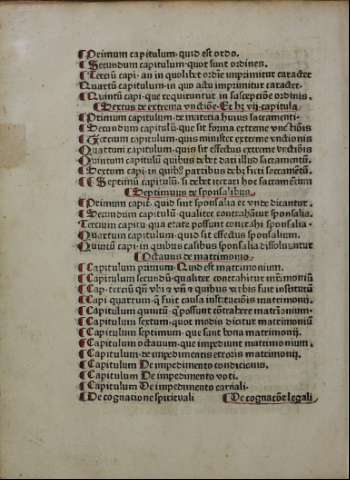 ¶Primum capitulum. quid est ordo.
¶Secundum capitulum. quot sunt ordines.
¶Terciū capi. an in quolibet ordīe imprimitur caracter
¶Quartū capitulum. in quo actu imprimitur caracter.
¶Quintū capi. que requirūtur in susceptiōe ordinis.
¶Sextus de extrema vnctiōe. Et hz vij. capitula.
¶Primum capitulum. de materia huius sacramenti.
¶Secundum capitulū. que sit forma extreme vnctiōis
¶Tercium capitulum. quis minister extreme vnctionis
¶Quartum capitulum. quis sit effectus extreme vnctiōis
¶Quintum capitulū quibus debet dari illud sacramētū.
¶Sextum capi. in quibꝰ partibus debꝫ fieri sacramētū.
¶Septimū capitulū. si debet iterari hoc sacramētum
¶Septimus de sponsalibus.
¶Primum capit. quid sint sponsalia et vnde dicantur.
¶Secundum capitulū. qualiter contrahātur sponsalia.
¶Tercium capitu. qua etate possunt contrahi sponsalia.
¶Quartum capitulum. quid sit effectus sponsalium.
¶Quintū capi. in quibus casibus sponsalia dissoluuntur
¶Octauus de matrimonio.
¶Capitulum primum. Quid est matrimonium.
¶Capitulum secundū. qualiter contrahitur mr̄imoniū
¶Cap. terciū qn̄ vbi et quibus verbis fuit institutū
¶Capi quartum. q̄ fuit causa institutiōis matrimonii.
¶Capitulum quintū. q̄ possunt cōtrahere matrimonium.
¶Capitulum sextum. quot modis dicitur matrimoniū
¶Capitulum septimum. que sunt bona matrimonij.
¶Capitulum octauum. que impediunt matrimonium.
¶Capitulum. de impedimentis erroris matrimonij.
¶Capitulum De impedimento conditionis.
¶Capitulum De impedimento voti.
¶Capitulum De impedimento carnali.
¶De cognatione spirituali ¶De cognatiōe legali